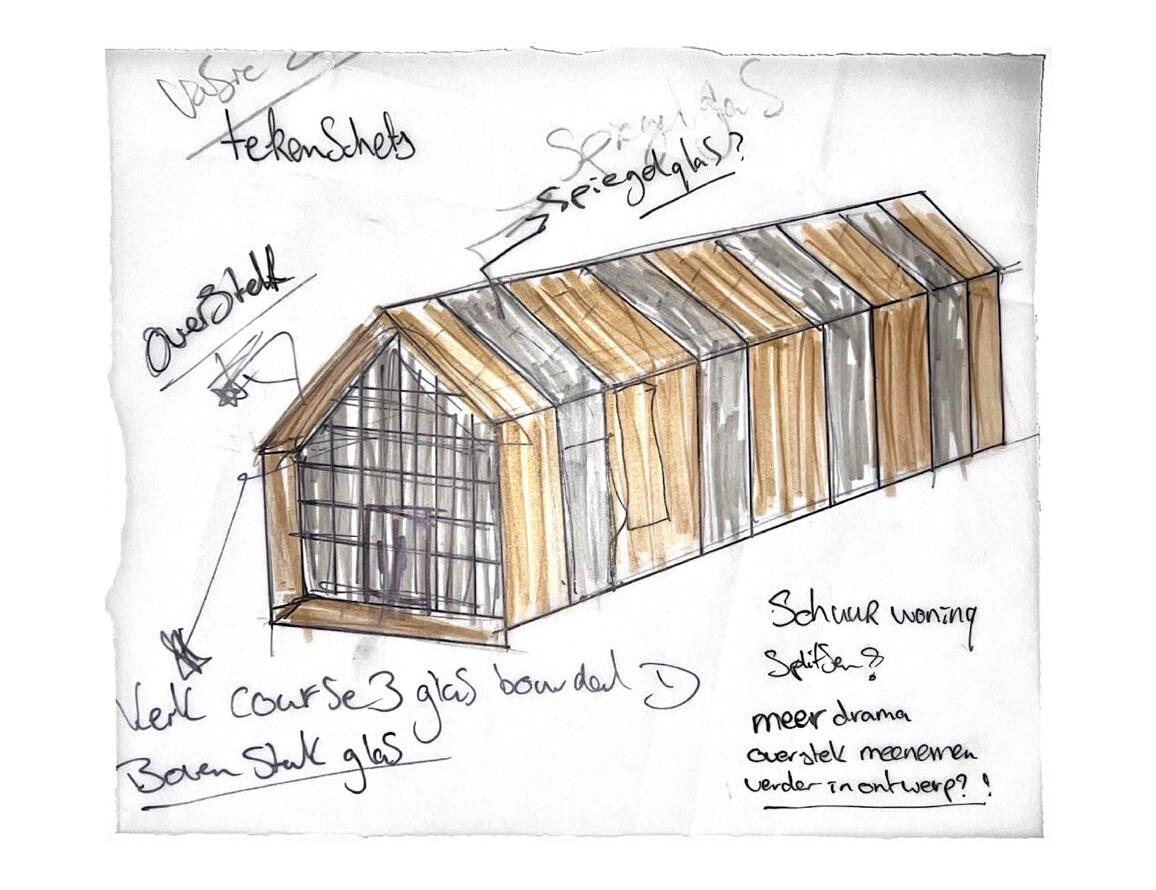 tekenschets
spiegelglas
spiegelglas?
overstek
kerk course 3 glas
Boven stuk glas
Schuur woning
Splitsen?
meer drama
overstek meenemen
verder in ontwerp? !